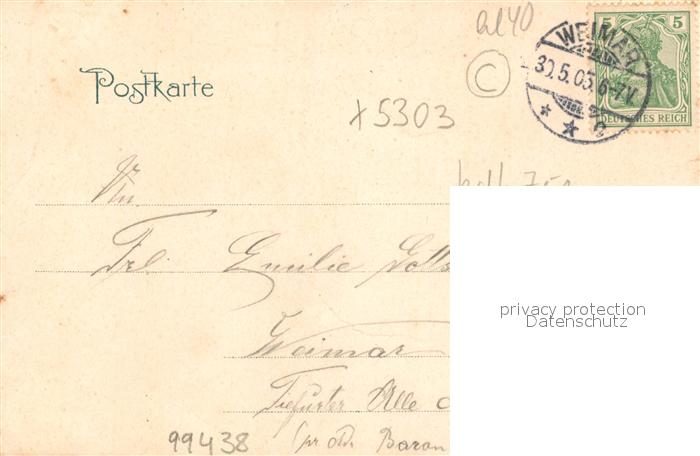 al40
5 5
WEIMAR
30.5.05.6-7V.
* * c
DEUTSCHES REICH
Postkarte
C
x5303
An
Frl. Emilie Gotts
privacy protection
Datenschutz
Weimar
Tiefurter Alle
99438
Baron